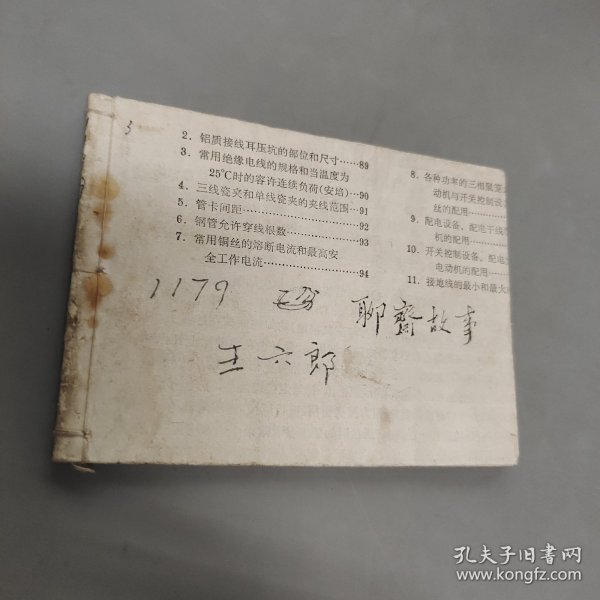 2. 铝质接线耳压坑的部位和尺寸……89
3. 常用绝缘电线的规格和当温度为
25℃时的容许连续负荷(安培)…90
4. 三线瓷夹和单线瓷夹的夹线范围…91
5. 管卡间距………………………92
6. 钢管允许穿线根数………………93
7. 常用铜丝的熔断电流和最高安
全工作电流………………………94
8. 各种功率的三相鼠笼
动机与开关控制设
丝的配用
9. 配电设备、配电干线
机的配用
10. 开关控制设备、配电
电动机的配用
11. 接地线的最小和最大
1179 聊齋故事
王六郎
孔夫子旧书网
www.kongfz.com